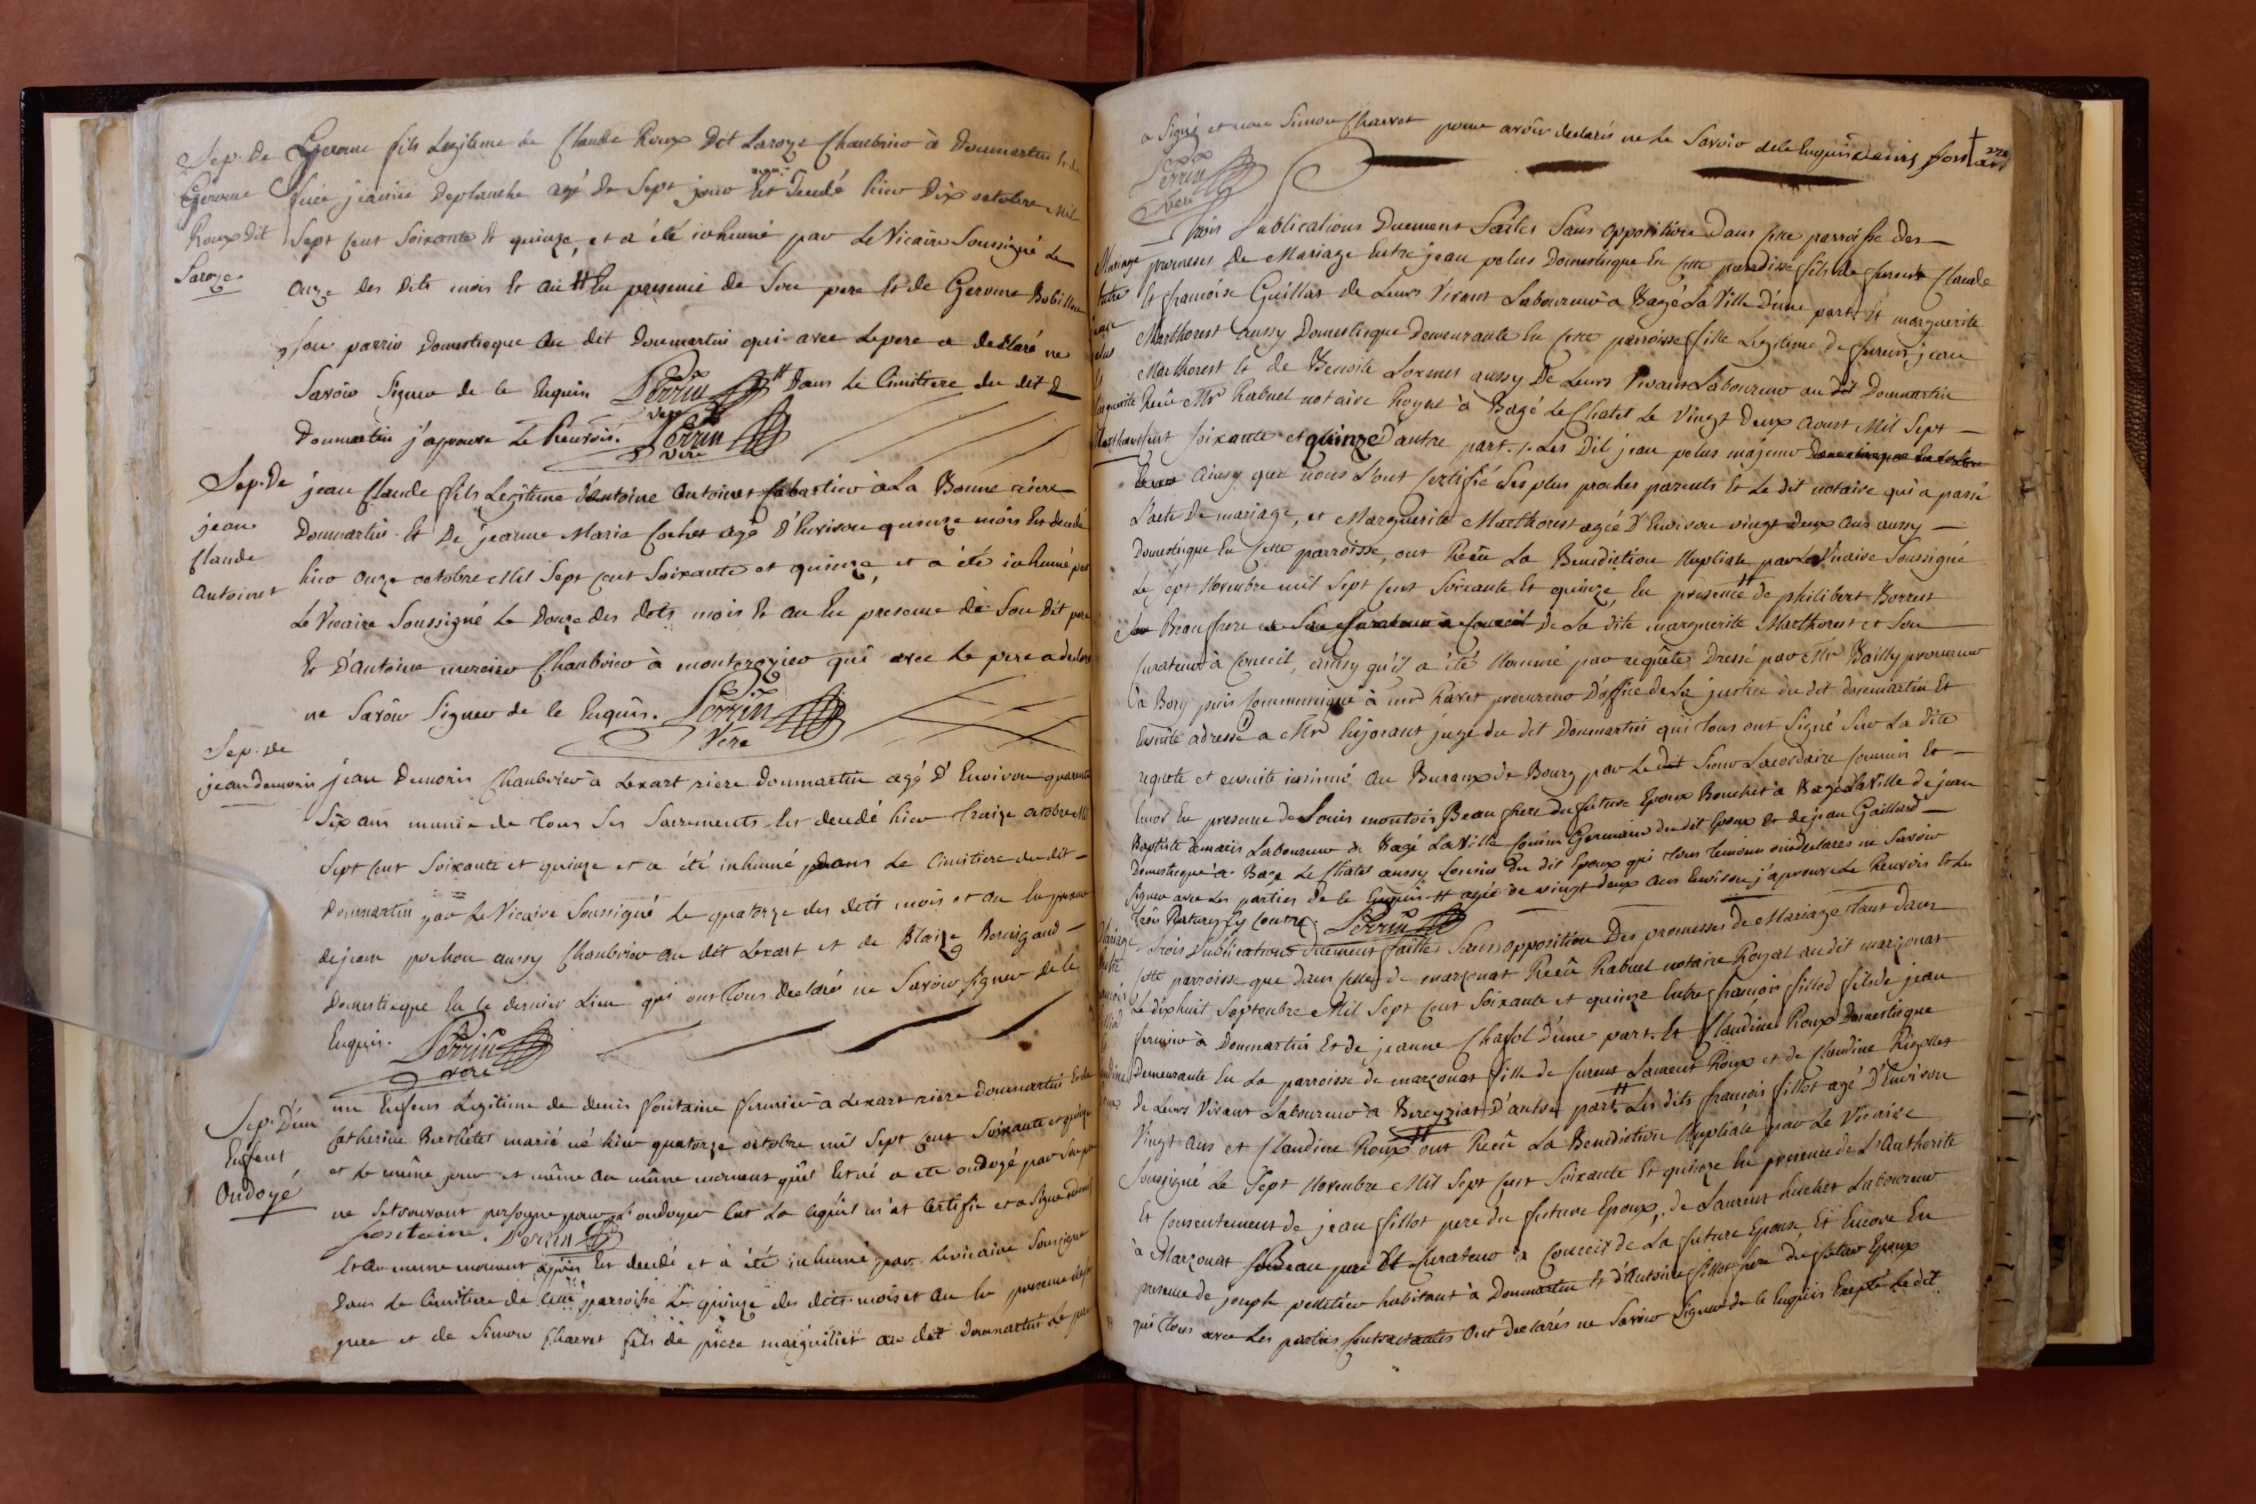 Sep. de
Gerome
Roux dit
Laroze
Gerome fils Legitime de Claude Roux dit Laroze Chanbrier à Donmartin et de
jeanne Deplanche agé de sept jours Est decedé hier dix octobre mil
Sept cent soixante et quinze, et a été inhumé par Le Vicaire Soussigné Le
onze des dits mois et an # En presence de Son pere et de Gerome
Son parrin Domestique au dit Donmartin qui avec Le pere a declaré ne
Savoir Signer de ce Enquis Perrin # dans le Cimitiere du dit
vere
Donmartin j'aprouve Le Renvois. Perrin
vere
Sep. De
jean
Claude
Antoinet
jean Claude fils Legitime d'antoine antoinet à La Bonne riere
Donmartin et De jeanne Maria Cochet agé d'Environ quinze mois Est decedé
hier onze octobre Mil Sept cent soixante et quinze, et a été inhumé par
Le Vicaire Soussigné Le Douze des dits mois et an En presence de Son dit pere
Et D'antoine mercier Chanbrier à montcrozier qui avec Le pere a declaré
ne Savoir Signer de ce Enquis. Perrin
Vere
Sep. de
jean demoris
jean Demoris Chanbrier à Lexart riere Donmartin agé D'Environ quarante
Six ans munie de tous Ses Sacrements Est decedé hier Traize octobre Mil
Sept cent Soixante et quinze et a été inhumé dans Le Cimitiere du dit
Donmartin par Le Vicaire Soussigné Le quatorze des dits mois et an En presence
de jean pochon aussy Chanbrier au dit Lexart et de Blaize Bernigaud
Domestique En ce dernier Lieu qui ont tous declaré ne Savoir Signer de ce
Enquis. Perrin
vere
Sep. D'un
Enfent
Ondoyé
un Enfent Legitime de denis fontaine fermier à Lexart riere Donmartin Et de
Catherine Berthelet marié né hier quatorze octobre mil Sept cent Soixante et quinze
et Le même jour et même au même moment qu'il Est né a ete ondoyé par Son pere
ne Se trouvant persogne pour L'ondoyer
fontaine. Perrin
Et au meme moment après Est decedé et a été inhumé par Le vicaire Soussigné
Dans Le Cimitiere de cette parroisse Le quinze des dits mois et an En presence de Son
pere et de Simon Charvet fils de piere maiguilier au dit Donmartin Le pere
a Signé et non Simon Charvet pour avoir declaré ne Le Savoir de ce Enquis denis fontaine
Perrin
vere
Mariage
Entre
jean
pelus
et
Marguerite
Marthoret
Trois Publications Duement Faites Sans opposition Dans cette parroisse des
promesses De Mariage Entre jean pelus Domestique En cette parroisse fils de furent Claude
Et francoise Guillat de Leurs Vivant Laboureur à Bagé La Ville D'une part. Et marguerite
Marthoret aussy Domestique Demeurante En cette parroisse fille Legitime de furent jean
Marthoret Et de Benoite Loremet aussy De Leurs Vivant Laboureur au dit Donmartin
Recû Mr Rabuel notaire Royal à Bagé Le Chatel Le Vingt Deux aoust Mil Sept
Cent soixante et quinze D'autre part. Les Dit jean pelus majeur
ainsy que nous L'ont certifié Ses plus proches parents Et Le dit notaire qui a passé
L'acte De mariage, et Marguerite Marthoret agée D'Environ vingt deux ans aussy
Domestique En cette parroisse, ont Recû La Benediction Nuptiale par Le Vicaire Soussigné
Le Sept Novembre mil Sept cent Soixante Et quinze En presence de philibert Borret
Beau frere De La dite marguerite Marthoret et Son
Curateur à Conceil, ainsy qu'il a été Nommé par requête Dressé par Mr Bailly procureur
à Bourg puis Communiqué à mr Ravet procureur D'office de La justice du dit donmartin Et
Ensuite adressé a Mr juge du dit Donmartin qui tous ont Signé Sur La dite
requete et ensuite insinué au Bureaux de Bourg par Le dit Sieur Lacordaire Commis Et
Encor En presence de Louis montois Beau frere du future Epoux Boucher à Bagé La Ville de jean
Baptiste Laboureur de Bagé La Ville Cousin Germain du dit Epoux Et de jean Gaillard
Domestique à Bagé Le Chatel aussy Cousin du dit Epoux qui tous declarés ne Savoir
Signer avec Les parties de ce Enquis # agée de vingt deux ans Environ j'aprouve Le Renvois Et Les
trois Ratures Cy Contre. Perrin
Mariage
Entre
Trois Publications duement faittes Sans opposition Des promesses de Mariage Tant dans
cette parroisse que dans celles de marçonat Recû Rabuel notaire Royal au dit marçonat
Le dixhuit Septembre Mil Sept cent Soixante et quinze Entre francois fillod fils de jean
fermier à Donmartin Et de jeanne Chafol D'une part. Et Claudine Roux Domestique
Demeurante En La parroisse de marçonat fille de furent Laurent Roux et de Claudine Rigollet
de Leurs Vivant Laboureur à Bereyziat D'autre part. # Les dits francois fillot agé D'Environ
Vingt ans et Claudine Roux # ont Recû La Benediction Nuptiale par Le Vicaire
Soussigné Le Sept Novembre Mil Sept cent Soixante Et quinze En presence de L'authorité
Et Consentement de jean fillot pere du future Epoux, de Laurent Luchet Laboureur
à Marçonat Son Beau pere Et Curateur à Conceil De La future Epouse Et Encore En
presence de joseph pelletier habitant à Donmartin Et d'Antoine fillot frere du futur Epoux
qui tous avec Les parties Contractantes ont declarés ne Savoir Signer de ce Enquis Exepté Le dit